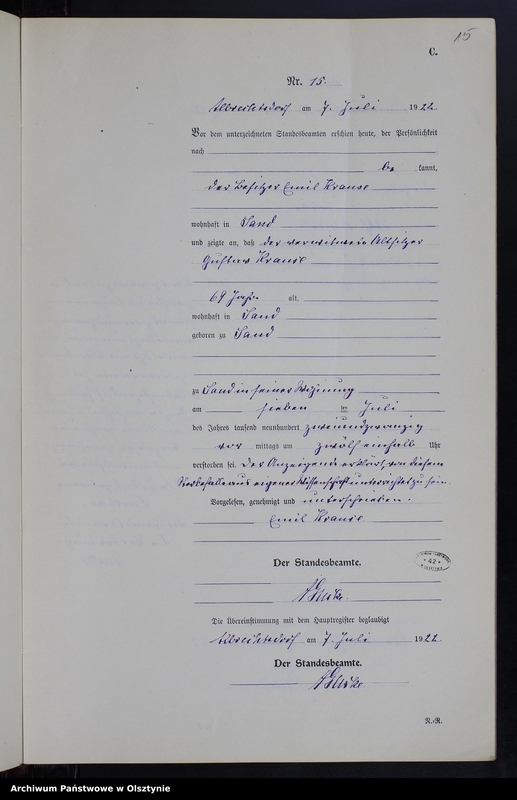 15
C.
Nr. 15.
Albrechtsdorf am 7. Juli 1922
Vor dem unterzeichneten Standesbeamten erschien heute, der Persönlichkeit
nach
be kannt,
der Besitzer Emil Krause
wohnhaft in Sand
und zeigte an, daß der verwitwete Altsitzer
Gustav Krause
69 Jahre alt,
wohnhaft in Sand
geboren zu Sand
zu Sand in seiner Wohnung
am sieben ten Juli
des Jahres tausend neunhundert zweiundzwanzig
vor mittags um zwölf einhalb Uhr
verstorben sei. Der Anzeigende erklärt, von diesem
Sterbefalle aus eigener Wissenschaft unterrichtet zu sein.
Vorgelesen, genehmigt und unterschrieben.
Emil Krause
Der Standesbeamte.
42
Die Übereinstimmung mit dem Hauptregister beglaubigt
Albrechtsdorf am 7. Juli 1922
Der Standesbeamte.
N.-R.
Archiwum Państwowe w Olsztynie